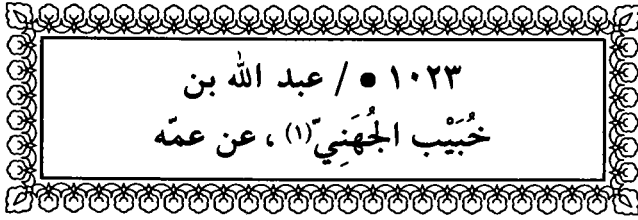 ١٠٢٣ • / عبد الله بن
خُبَيْب الجُهَنِيّ(١)، عن عمّه